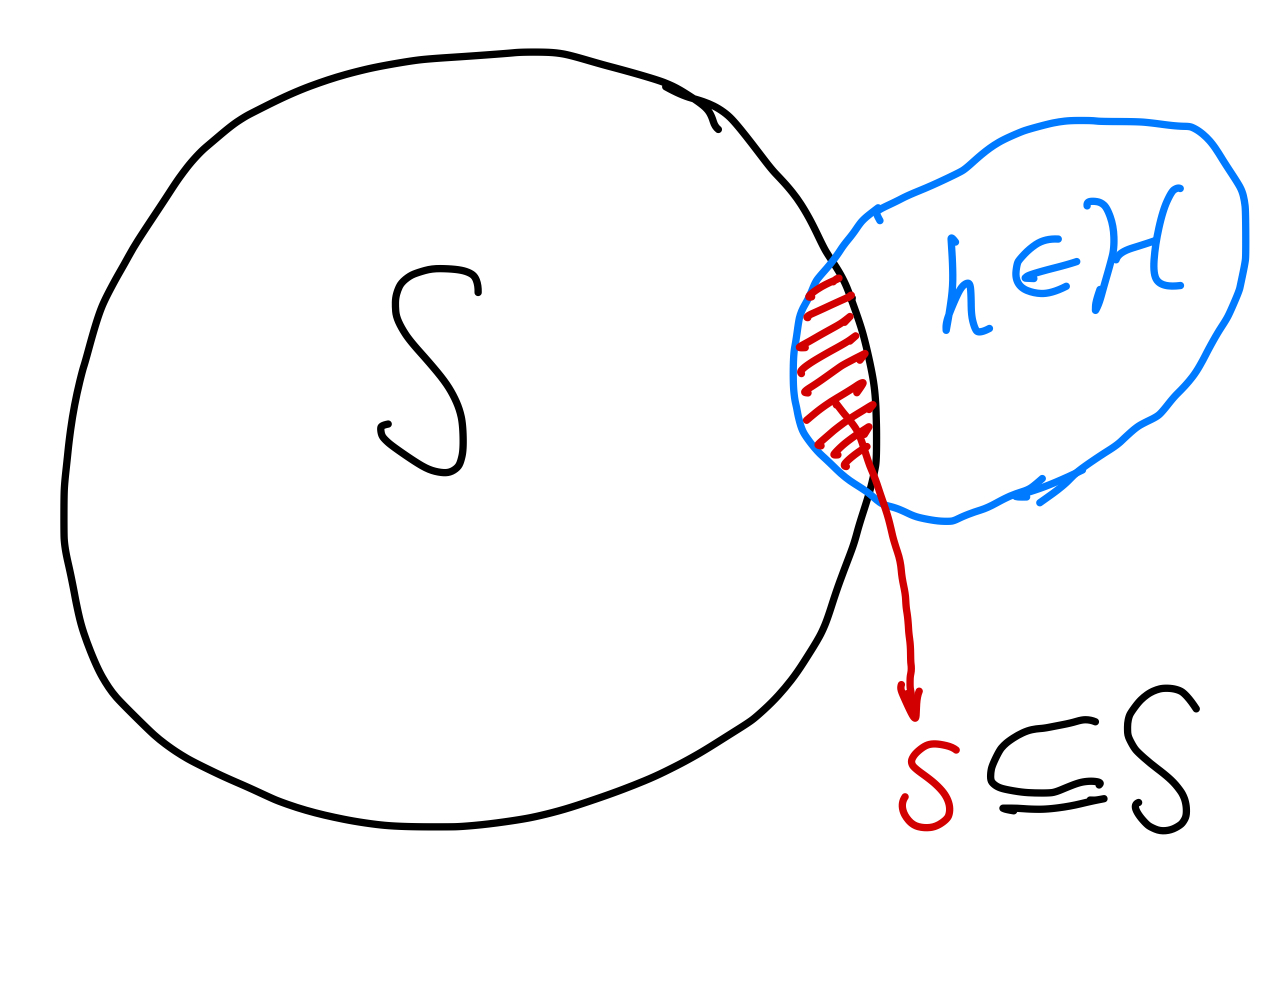 S
h ∈ ℋ
s ⊆ S